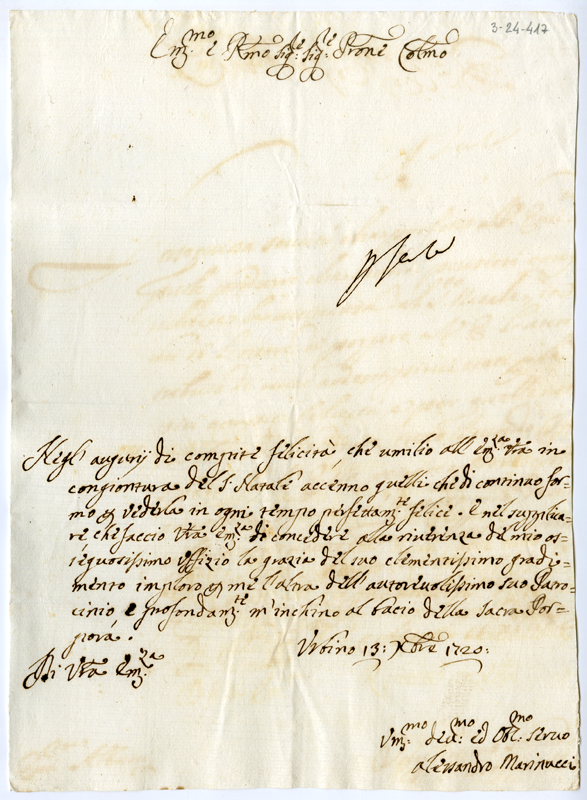 3-24-417
Em:mo e Rmo Sigre: Sigre: Prone Colmo
Negl' augurij di compite felicità, che umilio all' Em:za Vra in
congiontura del S. Natale accenno quelli che di continuo for-
mo p vederla in ogni tempo perfedam:te felice. e nel supplica-
re, che faccio Vra Em:za di concedere alla riverenza del mio os-
sequosissimo uffizio la grazia del suo clementissimo gradi-
mento imploro p me l'altra dell' autorevolissimo suo Patro-
cinio e profondam:te m'inchino al bacio della Sacra Por-
pora.
Urbino 13: Xbre 1720:
Di Vra Em:za
Um:mo dev:mo ed Obl:mo Servo
Alessandro Marinucci